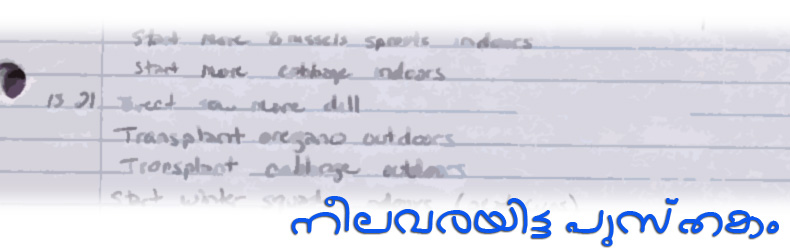 Start more Brussels sprouts indoors
Start more cabbage indoors
13 21 Direct sow more dill
Transplant oregano outdoors
Transplant cabbage outdoors
Start winter squash indoors
നീലവരയിട്ട പുസ്തകം